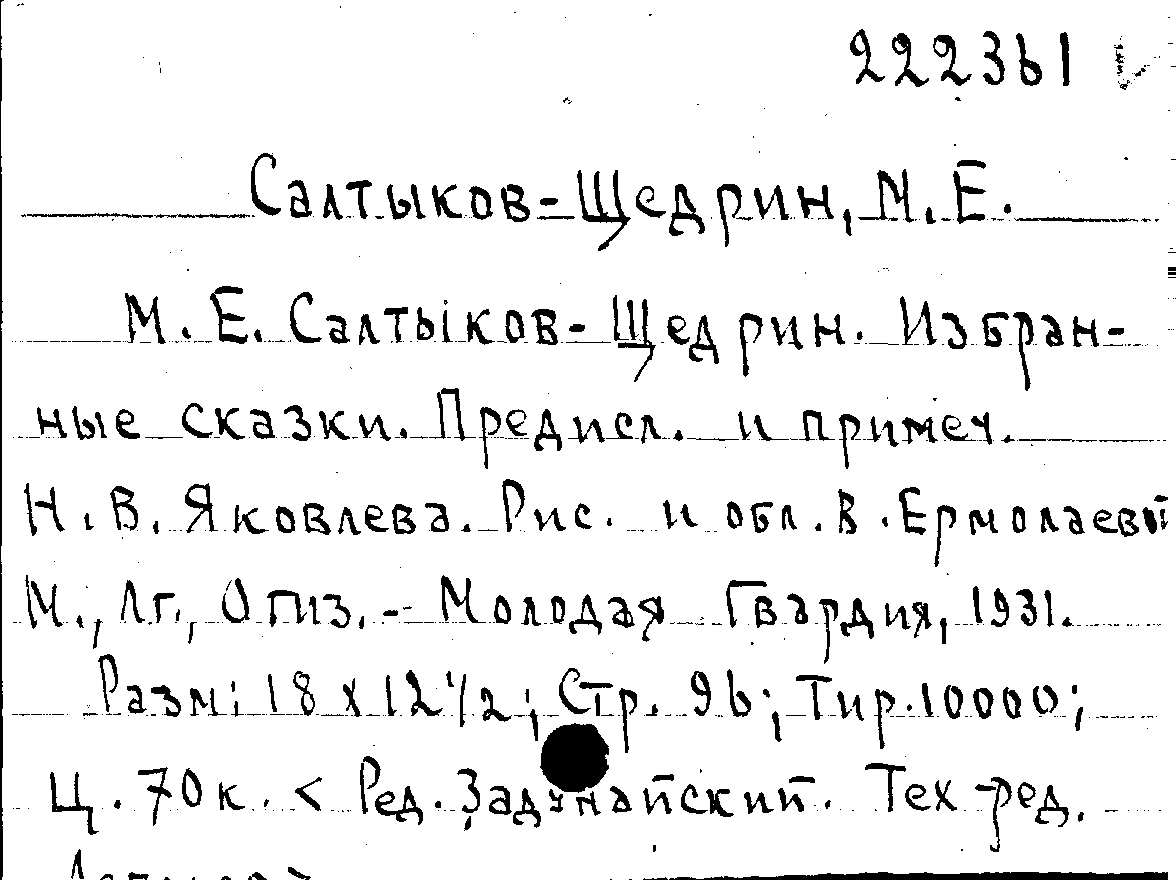 222361
Салтыков-Щедрин, М. Е.
М. Е. Салтыков-Щедрин. Избран-
ные сказки. Предисл. и примеч.
Н. В. Яковлева. Рис. и обл. В. Ермолаевой
М., Лг., Огиз. - Молодая Гвардия, 1931.
Разм: 18 x 12 1/2; Стр. 96; Тир. 10000;
Ц. 70 к. < Ред. Задунайский. Тех-ред.